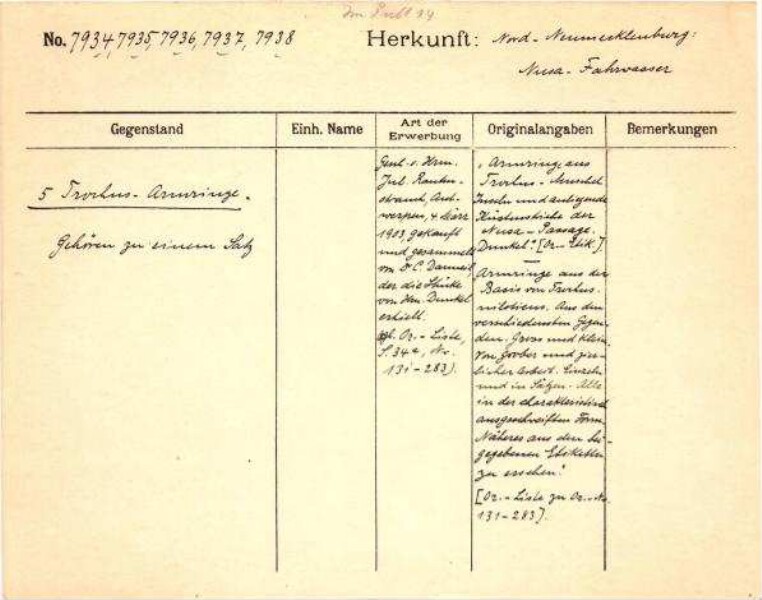 No. 7934, 7935, 7936, 7937, 7938
Herkunft: Nord-Neumecklenburg:
Nusa-Fahrwasser
Gegenstand
Einh. Name
Art der
Erwerbung
Originalangaben
Bemerkungen
5 Trochus-Armringe.
Gehören zu einem Satz
Gesch. v. Hrn.
Jul. Rauten-
strauch, Ant-
werpen, 4 März
1903, gekauft
und gesammelt
von Dr C. Danneil,
der die Stücke
von Hrn. Dunkel
erhielt.
vgl. Or.-Liste,
S. 34a, No.
131-283).
„Armringe aus
Trochus-Muschel
Inseln und anliegende
Küstenstriche der
Nusa-Passage.
Dunkel." [Or-Etik.].
„Armringe aus der
Basis von Trochus
niloticus. Aus den
verschiedensten Gegen-
den. Gross und klein.
Von grober und zier-
licher Arbeit. Einzeln
und in Sätzen. Alle
in der charakteristisch
ausgeschweiften Form.
Näheres aus den bei-
gegebenen Etiketten
zu ersehen."
[Or.-Liste zu Or.-No.
131-283].